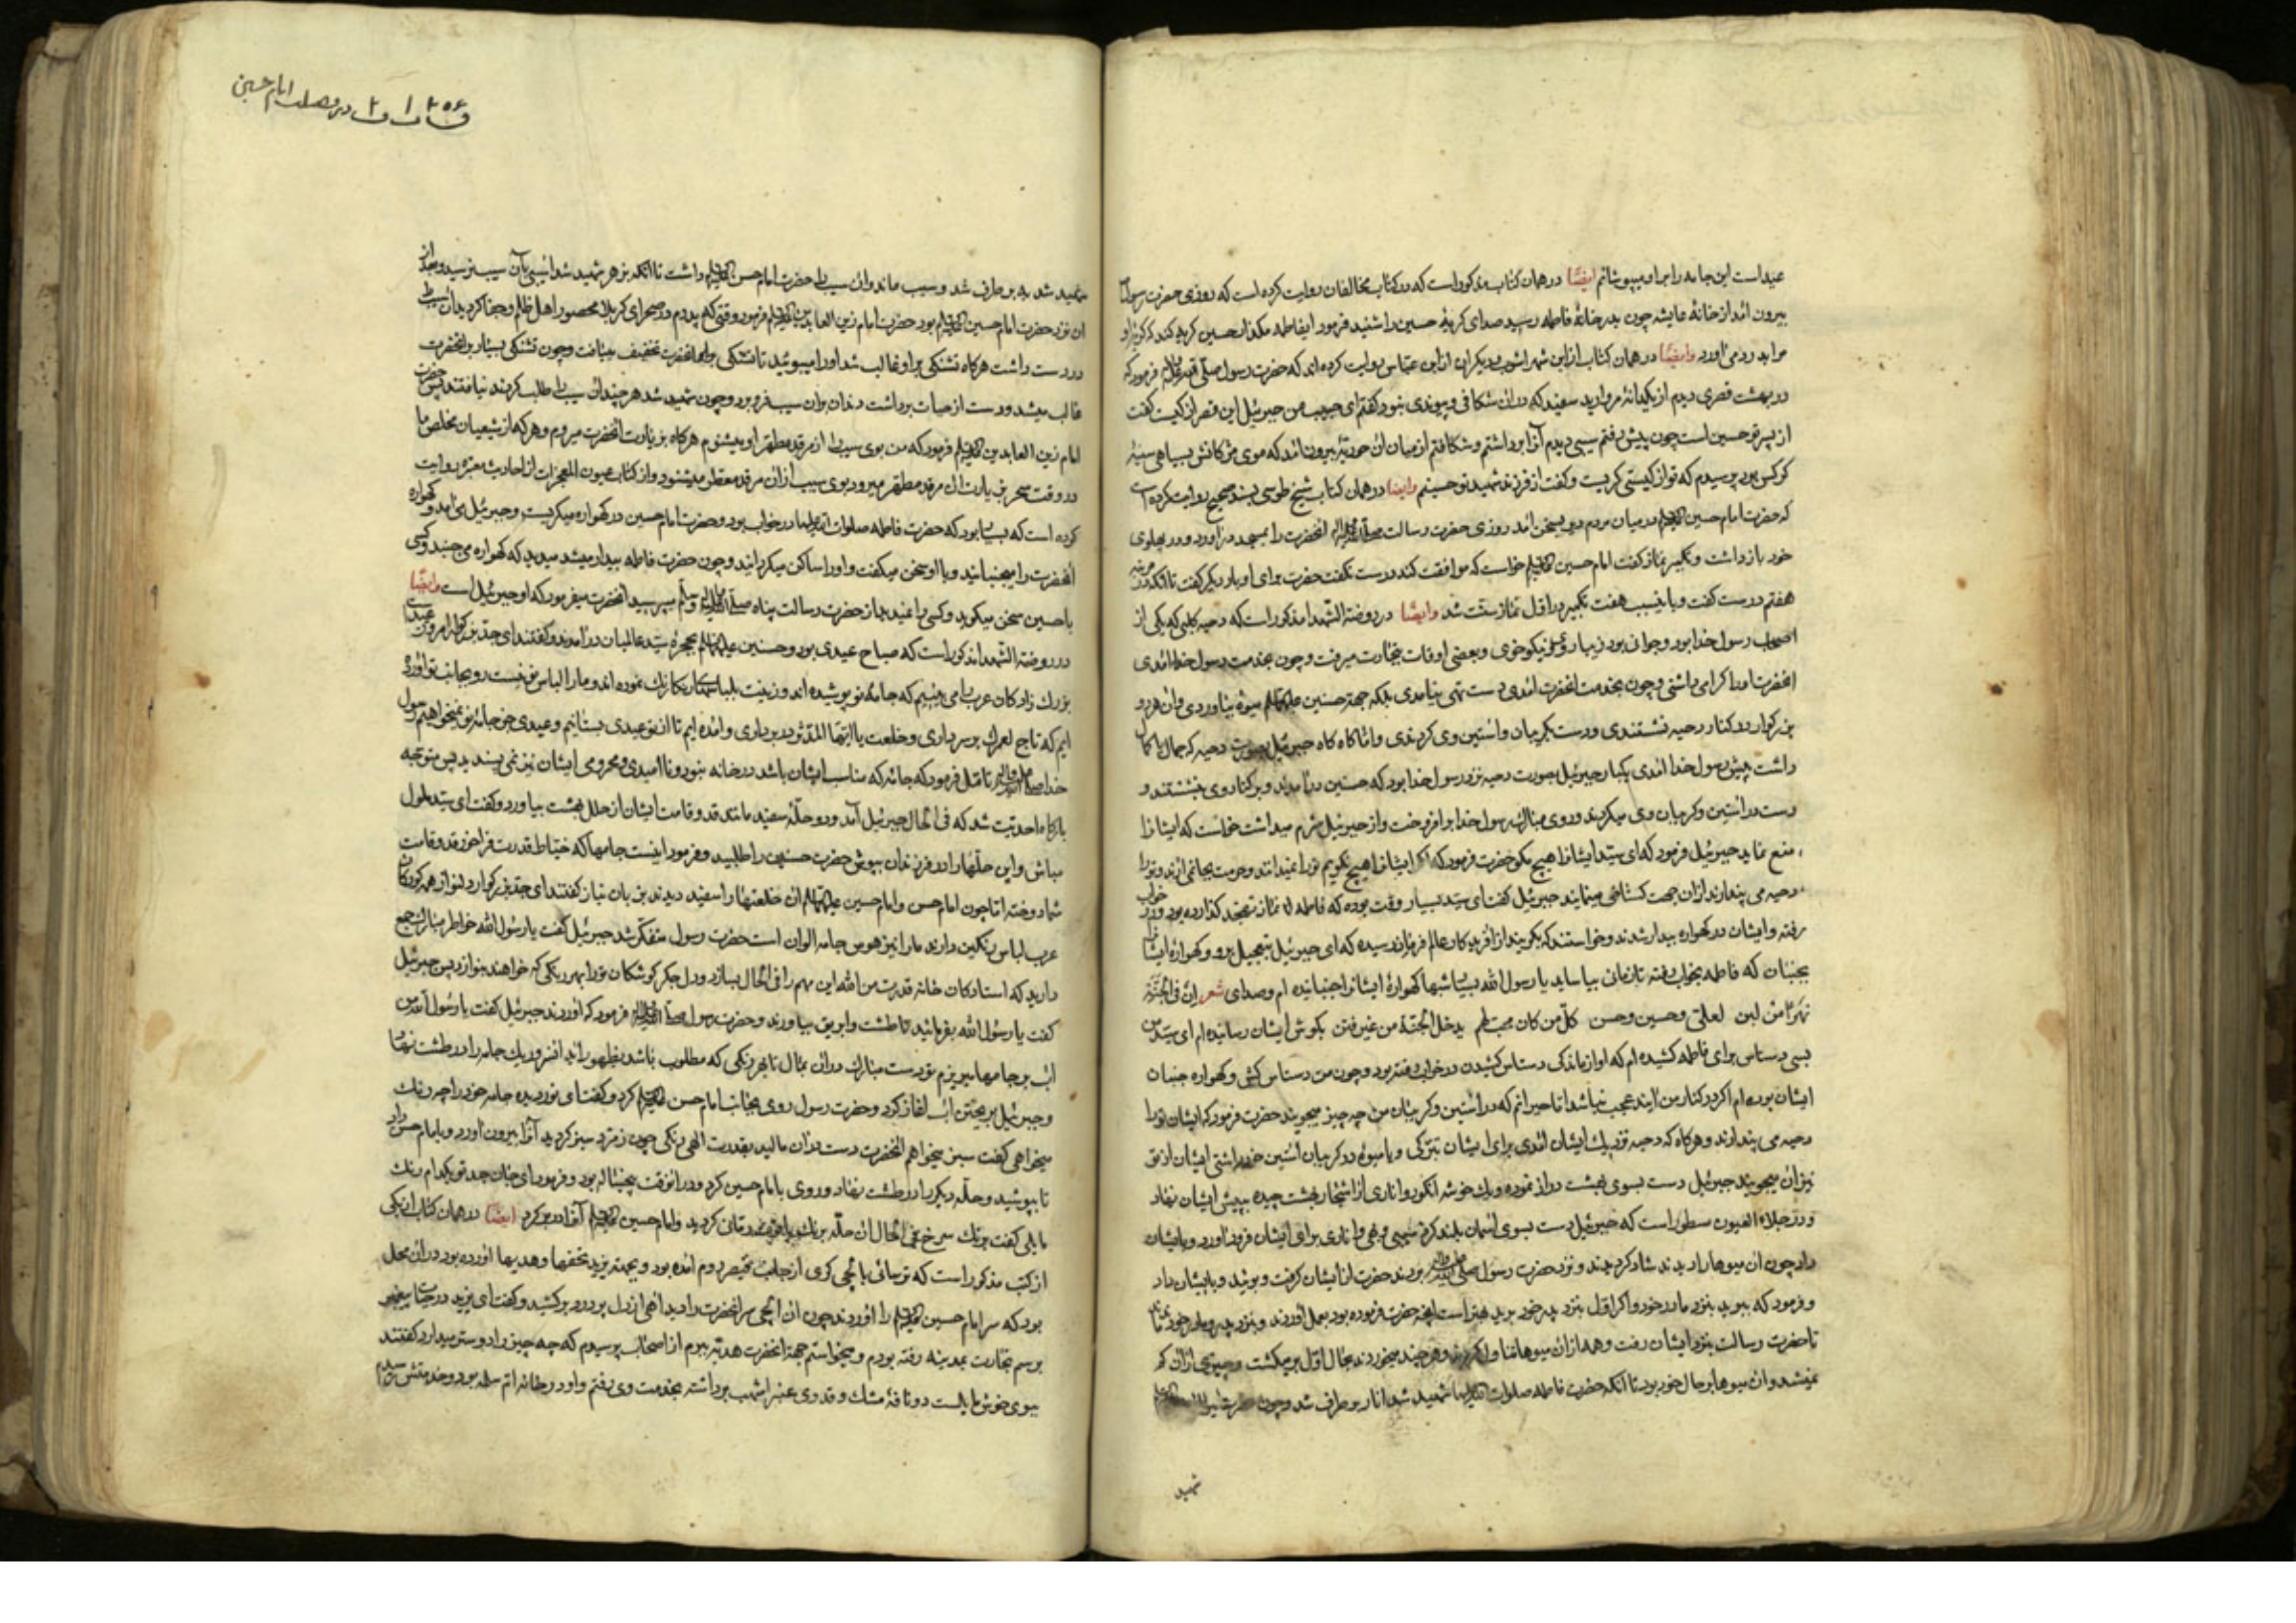 عید است این جامه را برای او میپوشانم ایضًا در همان کتاب مذکور است که در کتاب مخالفان روایت کرده است که روزی حضرت رسول
بیرون آمد از خانهٔ عایشه چون بدر خانهٔ فاطمه رسید صدای کریهٔ حسین را شنید فرمود ایفاطمه مکذار حسین کریه کند که کریهٔ او
مرا بدرد می آورد وایضًا در همان کتاب از ابن شهر اشوب و دیکران از ابن عباس روایت کرده اند که حضرت رسول فرمود که
در بهشت قصری دیدم از یکدانهٔ مروارید سفید که در ان شکافی و پیوندی نبود کفتم ای حبیب من جبرئیل این قصر از کیست کفت
از پسر تو حسین است چون پیش رفتم سیبی دیدم آنرا برداشتم و شکافتم از میان ان حوریهٔ بیرون آمد که موی مژکانش بسیاهی سینهٔ
کرکس بود پرسیدم که تو از کیستی کریست و کفت از فرزند شهید تو حسینم وایضا در همان کتاب شیخ طوسی بسند صحیح روایت کرده است
که حضرت امام حسین علیه السلم در میان مردم دیر بسخن آمد روزی حضرت رسالت انحضرت را بمسجد در آورد و در پهلوی
خود بازداشت و تکبیر نماز کفت امام حسین علیه السلم خواست که موافقت کند درست نکفت حضرت برای او بار دیکر کفت تا آنکه در مرتبه
هفتم درست کفت و باینسبب هفت تکبیر در اول نماز سنّت شد وایضًا در روضة الشهدا مذکور است که دحیه کلبی که یکی از
اصحاب رسول خدا بود و جوانی بود زیبا روی و نیکو خوی و بعضی اوقات بتجارت میرفت و چون بخدمت رسول خدا آمدی
انحضرت او را کرامی داشتی و چون بخدمت انحضرت آمدی دست تهی نیامدی بلکه جهة حسنین علیهما السلم میوهٔ بیاوردی و ان هر دو
بزرکوار در کنار دحیه نشستندی و دست بکریبان و آستین وی کردندی و اناکاه کاه جبرئیل بصورت دحیه که جمال با کمال
داشت پیش رسول خدا آمدی یکبار جبرئیل بصورت دحیه نزد رسول خدا بود که حسنین در آمدند و بر کنار وی بنشستند و
دست در آستین و کریبان وی میکردند و روی مبارك رسول خدا برافروخت و از جبرئیل شرم میداشت خواست که ایشانرا
منع نماید جبرئیل فرمود که ای سید ایشانرا هیچ مکو حضرت فرمود که اکر ایشانرا هیچ نکویم ترا نمیدانند و حرمت بجا نمی آرند و ترا
دحیه می پندارند ازان جهت کستاخی مینمایند جبرئیل کفت ای سید بسیار وقت بوده که فاطمه نماز تهجد کذارده بود و در خواب
رفته و ایشان در کهواره بیدار شدند و خواستند که بکریند از آفریدکار عالم فرمان رسیده که ای جبرئیل بتعجیل برو و کهوارهٔ ایشانرا
بجنبان که فاطمه بخواب رفته تا زمانی بیاساید یا رسول الله بسیار شبها کهوارهٔ ایشانرا جنبانیده ام و صدای شعر انّ فی الجنّة
نهرًا من لبن لعلیّ و حسین و حسن کلّ من کان محبّ لهم یدخل الجنّة من غیر فتن بکوش ایشان رسانیده ام ای سید من
بسی دستاس برای فاطمه کشیده ام که او از ماندکی دستاس کشیدن در خواب رفته بود و چون من دستاس کش و کهواره جنبان
ایشان بوده ام اکر در کنار من آیند عجب نباشد اما حیرانم که در آستین و کریبان من چه چیز میجویند حضرت فرمود که ایشان ترا
دحیه می پندارند و هرکاه که دحیه نزدیك ایشان آمدی برای ایشان تبرکی و یا میوهٔ در کریبان آستین خود داشتی ایشان از تو
نیز ان میجویند جبرئیل دست بسوی بهشت دراز نموده و یك خوشه انکور و اناری از اشجار بهشت چیده پیش ایشان نهاد
و در جلاء العیون مسطور است که جبرئیل دست بسوی آسمان بلند کرد سیبی و بهی و اناری برای ایشان فرود آورد و بایشان
داد چون ان میوها را دیدند شاد کردیدند و نزد حضرت رسول بردند حضرت از ایشان کرفت و بوئید و بایشان داد
و فرمود که ببرید بنزد مادر خود و اکر اوّل بنزد پدر خود برید بهتر است آنچه حضرت فرموده بود بعمل آوردند و بنزد پدر و مادر خود ماندند
تا حضرت رسالت بنزد ایشان رفت و همه ازان میوها تناول کردند و هر چند میخوردند بحال اوّل بر میکشت و چیزی ازان کم
نمیشد و ان میوها بر حال خود بود تا آنکه حضرت فاطمه صلوات الله علیها شهید شد انار بر طرف شد و چون حضرت
شهید
در فضیلت امام حسین
شهید شد به بر طرف شد و سیب ماند و ان سیب را حضرت امام حسن علیه السلم داشت تا آنکه بزهر شهید شد آسیبی بآن سیب نرسید و بعد از
ان نزد حضرت امام حسین علیه السلم بود حضرت امام زین العابدین علیه السلم فرمود وقتی که پدرم در صحرای کربلا محصور اهل ظلم و جفا کردید ان سیب را
در دست داشت هرکاه تشنکی بر او غالب شد او را میبوئید تا تشنکی انحضرت تخفیف مییافت و چون تشنکی بسیار بر انحضرت
غالب میشد و دست از حیات برداشت دندان بران سیب فرو برد و چون شهید شد هر چند ان سیب را طلب کردند نیافتند پس حضرت
امام زین العابدین علیه السلم فرمود که من بوی سیب را از مرقد مطهر او میشنوم هرکاه بزیارت انحضرت میروم و هر که از شیعیان مخلص ما
در وقت سحر بزیارت ان مرقد مطهر میرود بوی سیب ازان مرقد معطر میشنود و از کتاب عیون المعجزات از احادیث معتبره روایت
کرده است که بسیار بود که حضرت فاطمه صلوات الله علیها در خواب بود و حضرت امام حسین در کهواره میکریست و جبرئیل می آمد و کهواره
انحضرت را میجنبانید و با او سخن میکفت و او را ساکن میکردانید و چون حضرت فاطمه بیدار میشد میدید که کهواره می جنبد و کسی
با حسین سخن میکوید و کسی را نمیدید از حضرت رسالت پناه میپرسید انحضرت میفرمود که او جبرئیل است وایضًا
در روضة الشهدا مذکور است که صباح عیدی بود و حسنین علیهما السلم بحجرهٔ سید عالمیان در آمدند و کفتند ای جدّ بزرکوار امروز عید است
بزرك زادکان عرب را می بینیم که جامهٔ نو پوشیده اند و زینت بلباسهای رنکارنك نموده اند و ما را لباس نو نیست رو بجانب تو آورده
ایم که تاج لعمرك بر سر داری و خلعت یا ایها المدثر در بر داری و آمده ایم تا از تو عیدی بستانیم و عیدی جز جامهٔ نو نمیخواهیم رسول
خدا تامّل فرمود که جامه که مناسب ایشان باشد در خانه نبود و ناامیدی و محرومی ایشان نیز نمی پسندید پس متوجه
بارکاه احدیت شد که فی الحال جبرئیل آمد و دو حلّهٔ سفید مانند قد و قامت ایشان از حلل بهشت بیاورد و کفت ای سید ملول
مباش و این حلّها را در فرزندان بپوش حضرت حسنین را طلبید و فرمود اینست جامها که خیاط قدرت فراخور قد و قامت
شما دوخته اما چون امام حسن و امام حسین علیهما السلم ان خلعتها را سفید دیدند بزبان نیاز کفتند ای جدّ بزرکوار دلنواز همه کودکان
عرب لباس رنکین دارند ما را نیز هوس جامه الوان است حضرت رسول متفکّر شد جبرئیل کفت یا رسول الله خاطر مبارك جمع
دارید که استادکان خانه قدرت من الله این مهم را فی الحال بسازد و دل جکر کوشکان ترا بهر رنکی که خواهند بنوازد پس جبرئیل
کفت یا رسول الله بفرمائید تا طشت و ابریق بیاورند و حضرت رسول فرمود که آوردند جبرئیل کفت یا رسول الله من
آب بر جامها میریزم تو دست مبارك دران بمال تا بهر رنکی که مطلوب باشد بظهور آید آنسرور یك جامه را در طشت نهاد
و جبرئیل بریختن آب آغاز کرد و حضرت رسول روی بجانب امام حسن علیه السلم کرد و کفت ای نور دیده جامه خود را چه رنك
میخواهی کفت سبز میخواهم انحضرت دست دران مالید بقدرت الهی رنکی چون زمرّد سبز کردید آنرا بیرون آورد و بامام حسن داد
تا بپوشید و حلّه دیکر را در طشت نهاد و روی بامام حسین کرد و در انوقت پنجساله بود و فرمود ای جان جد تو بکدام رنك
مایلی کفت برنك سرخ فی الحال ان حلّه برنك یاقوت رمّانی کردید و امام حسین علیه السلم آنرا در بر کرد ایضًا در همان کتاب از یکی
از کتب مذکور است که ترسائی بایلچی کری از جانب قیصر روم آمده بود و بجهة یزید تحفها و هدیها آورده بود دران محل
بود که سر امام حسین علیه السلم را آوردند چون ان ایلچی سر انحضرت را دید آهی از دل پر درد بر کشید و کفت ای یزید در حیات پیغمبر
برسم تجارت بمدینه رفته بودم و میخواستم جهة انحضرت هدیّه ببرم از اصحاب پرسیدم که چه چیز را دوستر میدارد کفتند
ببوی خوش مایلست دو نافهٔ مشك و قدری عنبر اشهب برداشته بخدمت وی رفتم و او در خانه ام سلمه بود و خدمتش رسیدم